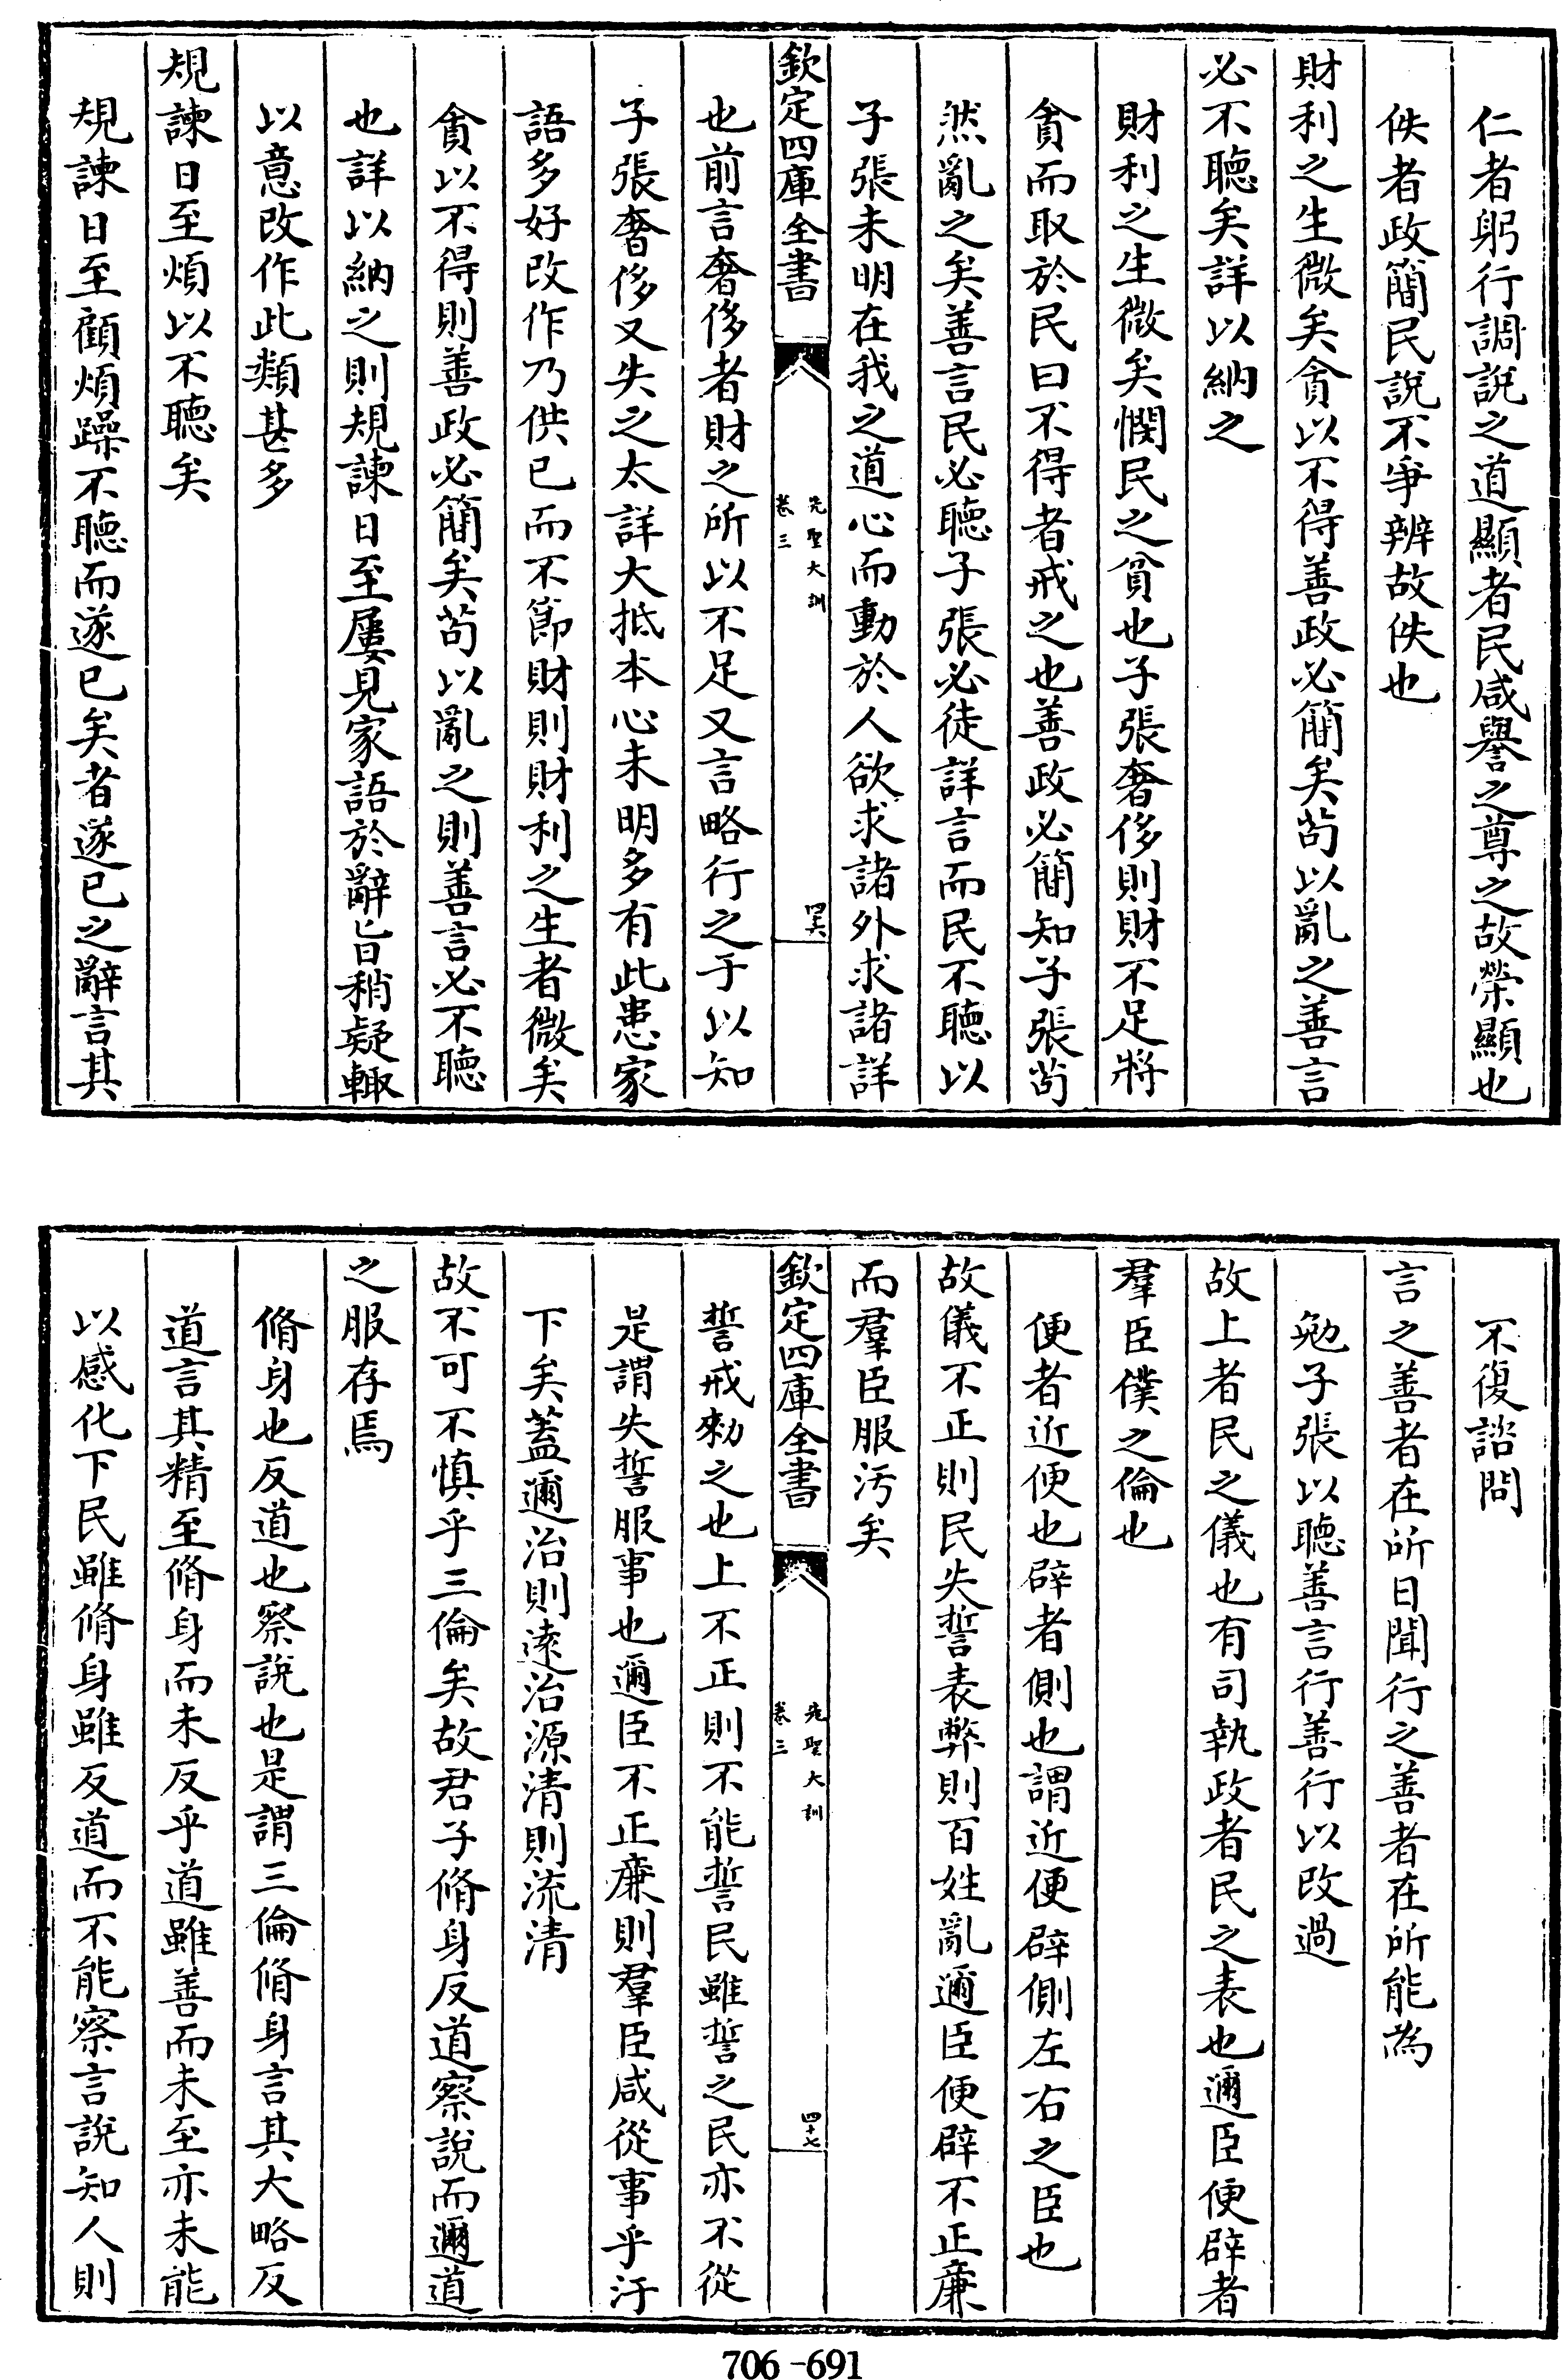 仁者躬行調説之道顯者民咸譽之尊之故榮顯也
佚者政簡民説不爭辨故佚也
財利之生微矣貪以不得善政必簡矣茍以亂之善言
必不聽矣詳以納之
財利之生微矣憫民之貧也子張奢侈則財不足將
貪而取於民曰不得者戒之也善政必簡知子張茍
然亂之矣善言民必聽子張必徒詳言而民不聽以
子張未明在我之道心而動於人欲求諸外求諸詳
欽定四庫全書
先聖大訓
卷三
四六
也前言奢侈者財之所以不足又言略行之于以知
子張奢侈又失之太詳大抵本心未明多有此患家
語多好改作乃供已而不節財則財利之生者微矣
貪以不得則善政必簡矣茍以亂之則善言必不聽
也詳以納之則規諫日至屢見家語於辭旨稍疑輙
以意改作此類甚多
規諫日至煩以不聽矣
規諫日至顧煩躁不聽而遂已矣者遂已之辭言其
不復諮問
言之善者在所日聞行之善者在所能為
勉子張以聽善言行善行以改過
故上者民之儀也有司執政者民之表也邇臣便辟者
羣臣僕之倫也
便者近便也辟者側也謂近便辟側左右之臣也
故儀不正則民失誓表弊則百姓亂邇臣便辟不正廉
而羣臣服汚矣
欽定四庫全書
先聖大訓
卷三
四十七
誓戒勑之也上不正則不能誓民雖誓之民亦不從
是謂失誓服事也邇臣不正廉則羣臣咸從事乎汙
下矣蓋邇治則逺治源清則流清
故不可不慎乎三倫矣故君子脩身反道察說而邇道
之服存焉
脩身也反道也察說也是謂三倫脩身言其大略反
道言其精至脩身而未反乎道雖善而未至亦未能
以感化下民雖脩身雖反道而不能察言說知人則
706-691